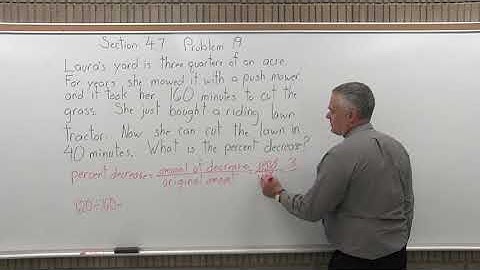 Section 4.7 Problem 9
Laura's yard is three quarters of an acre.
For years she mowed it with a push mower
and it took her 160 minutes to cut the
grass. She just bought a riding lawn
tractor. Now she can cut the lawn in
40 minutes. What is the percent decrease?
percent decrease = amount of decrease = 3
original amount
120÷160=